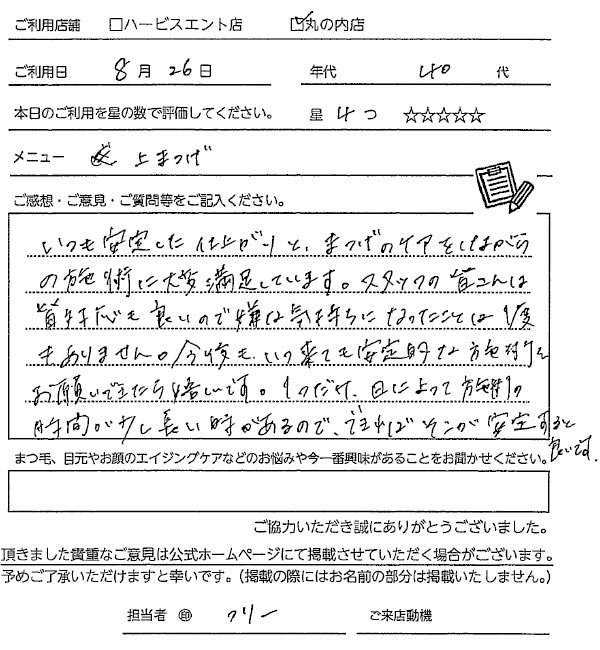 ご利用店舗 □ハービスエント店 ☑丸の内店
ご利用日 8月26日 年代 40代
本日のご利用を星の数で評価してください。 星 4つ ☆☆☆☆☆
メニュー 上まつげ
ご感想・ご意見・ご質問等をご記入ください。
いつも安定した仕上がりと、まつげのケアをしながら
の施術に大変満足しています。スタッフの皆さんは
皆対応も良いので嫌な気持ちになったことは1度
もありません。今後も、いつ来ても安定的な施術を
お願いできたら嬉いです。1つだけ、日によって施術の
時間が少し長い時があるので、できればそこが安定すると
良いです。
まつ毛、目元やお顔のエイジングケアなどのお悩みや今一番興味があることをお聞かせください。
ご協力いただき誠にありがとうございました。
頂きました貴重なご意見は公式ホームページにて掲載させていただく場合がございます。
予めご了承いただけますと幸いです。（掲載の際にはお名前の部分は掲載いたしません。）
担当者 ㊞ フリー ご来店動機